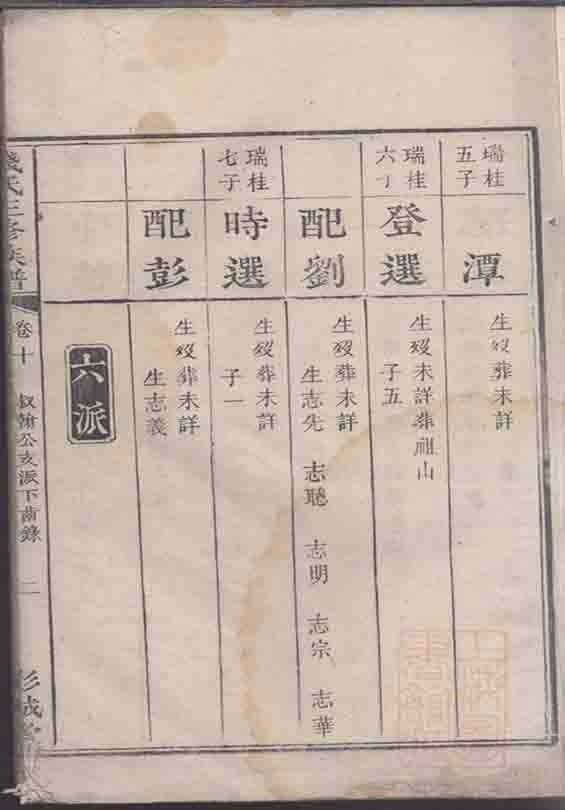 瑞桂
五子
潭
生歿葬未詳
瑞桂
六子
登選
生歿未詳葬祖山
子五
配劉
生歿葬未詳
生志先 志聰 志明 志宗 志華
瑞桂
七子
時選
生歿葬未詳
子一
配彭
生歿葬未詳
生志義
六派
錢氏三修族譜
卷十
叙翰公支派下齒錄
二
彭城堂